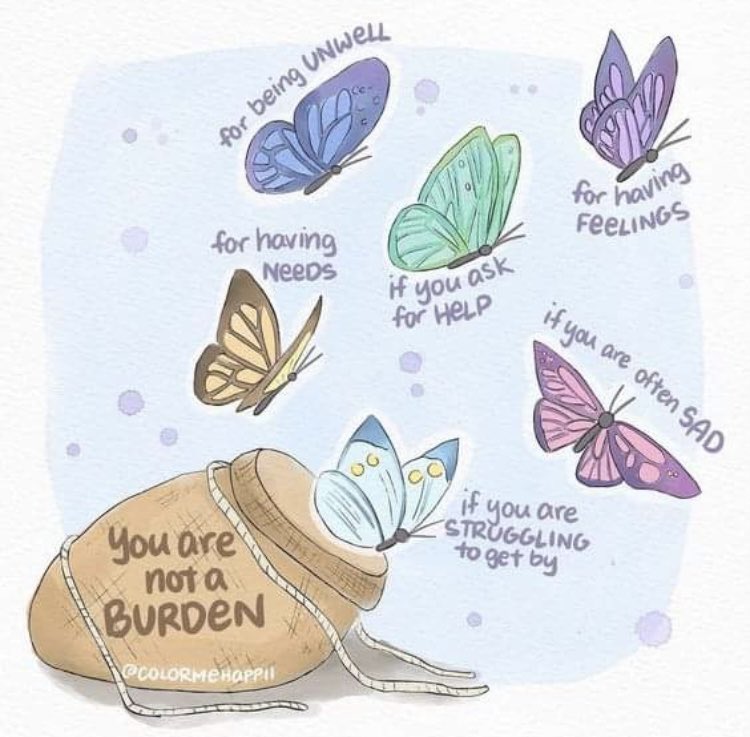 for being UNWELL
for having
FEELINGS
for having
NEEDS
if you ask
for HELP
if you are often SAD
if you are
STRUGGLING
to get by
you are
not a
BURDEN
@COLORMEHAPPII